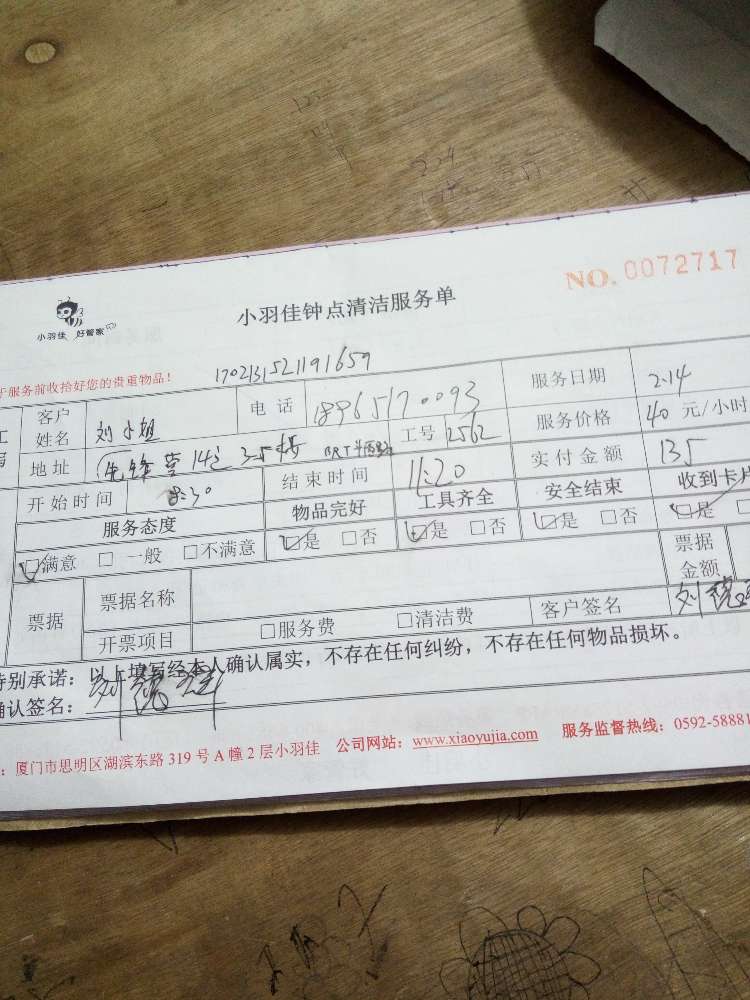 NO. 0072717
小羽佳钟点清洁服务单
小羽佳 好管家
于服务前收拾好您的贵重物品！
1702131521191659
客户姓名 刘小姐 电话 18965170093 服务日期 2.14
地址 先锋营14之 3-5楼 工号 2562 服务价格 40 元/小时
开始时间 8:30 结束时间 11:20 实付金额 135
服务态度 物品完好 工具齐全 安全结束 收到卡片
□满意 □一般 □不满意 □是 □否 □是 □否 □是 □否 □是 □
票据 票据名称 票据金额
开票项目 □服务费 □清洁费 客户签名 刘
特别承诺：以上填写经本人确认属实，不存在任何纠纷，不存在任何物品损坏。
确认签名：刘
：厦门市思明区湖滨东路 319 号 A 幢 2 层小羽佳 公司网站：www.xiaoyujia.com 服务监督热线：0592-58881